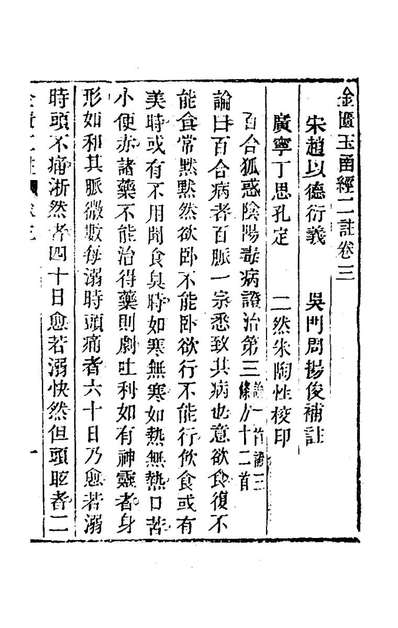 金匱玉函經二註卷三
宋趙以德衍義 吳門周揚俊補註
廣寧丁思孔定 二然朱陶性校印
百合狐惑陰陽毒病證治第三 論一首證三條方十二首
論曰百合病者百脈一宗悉致其病也意欲食復不
能食常默默然欲臥不能臥欲行不能行飲食或有
美時或有不用聞食臭時如寒無寒如熱無熱口苦
小便赤諸藥不能治得藥則劇吐利如有神靈者身
形如和其脈微數每溺時頭痛者六十日乃愈若溺
時頭不痛淅然者四十日愈若溺快然但頭眩者二
一